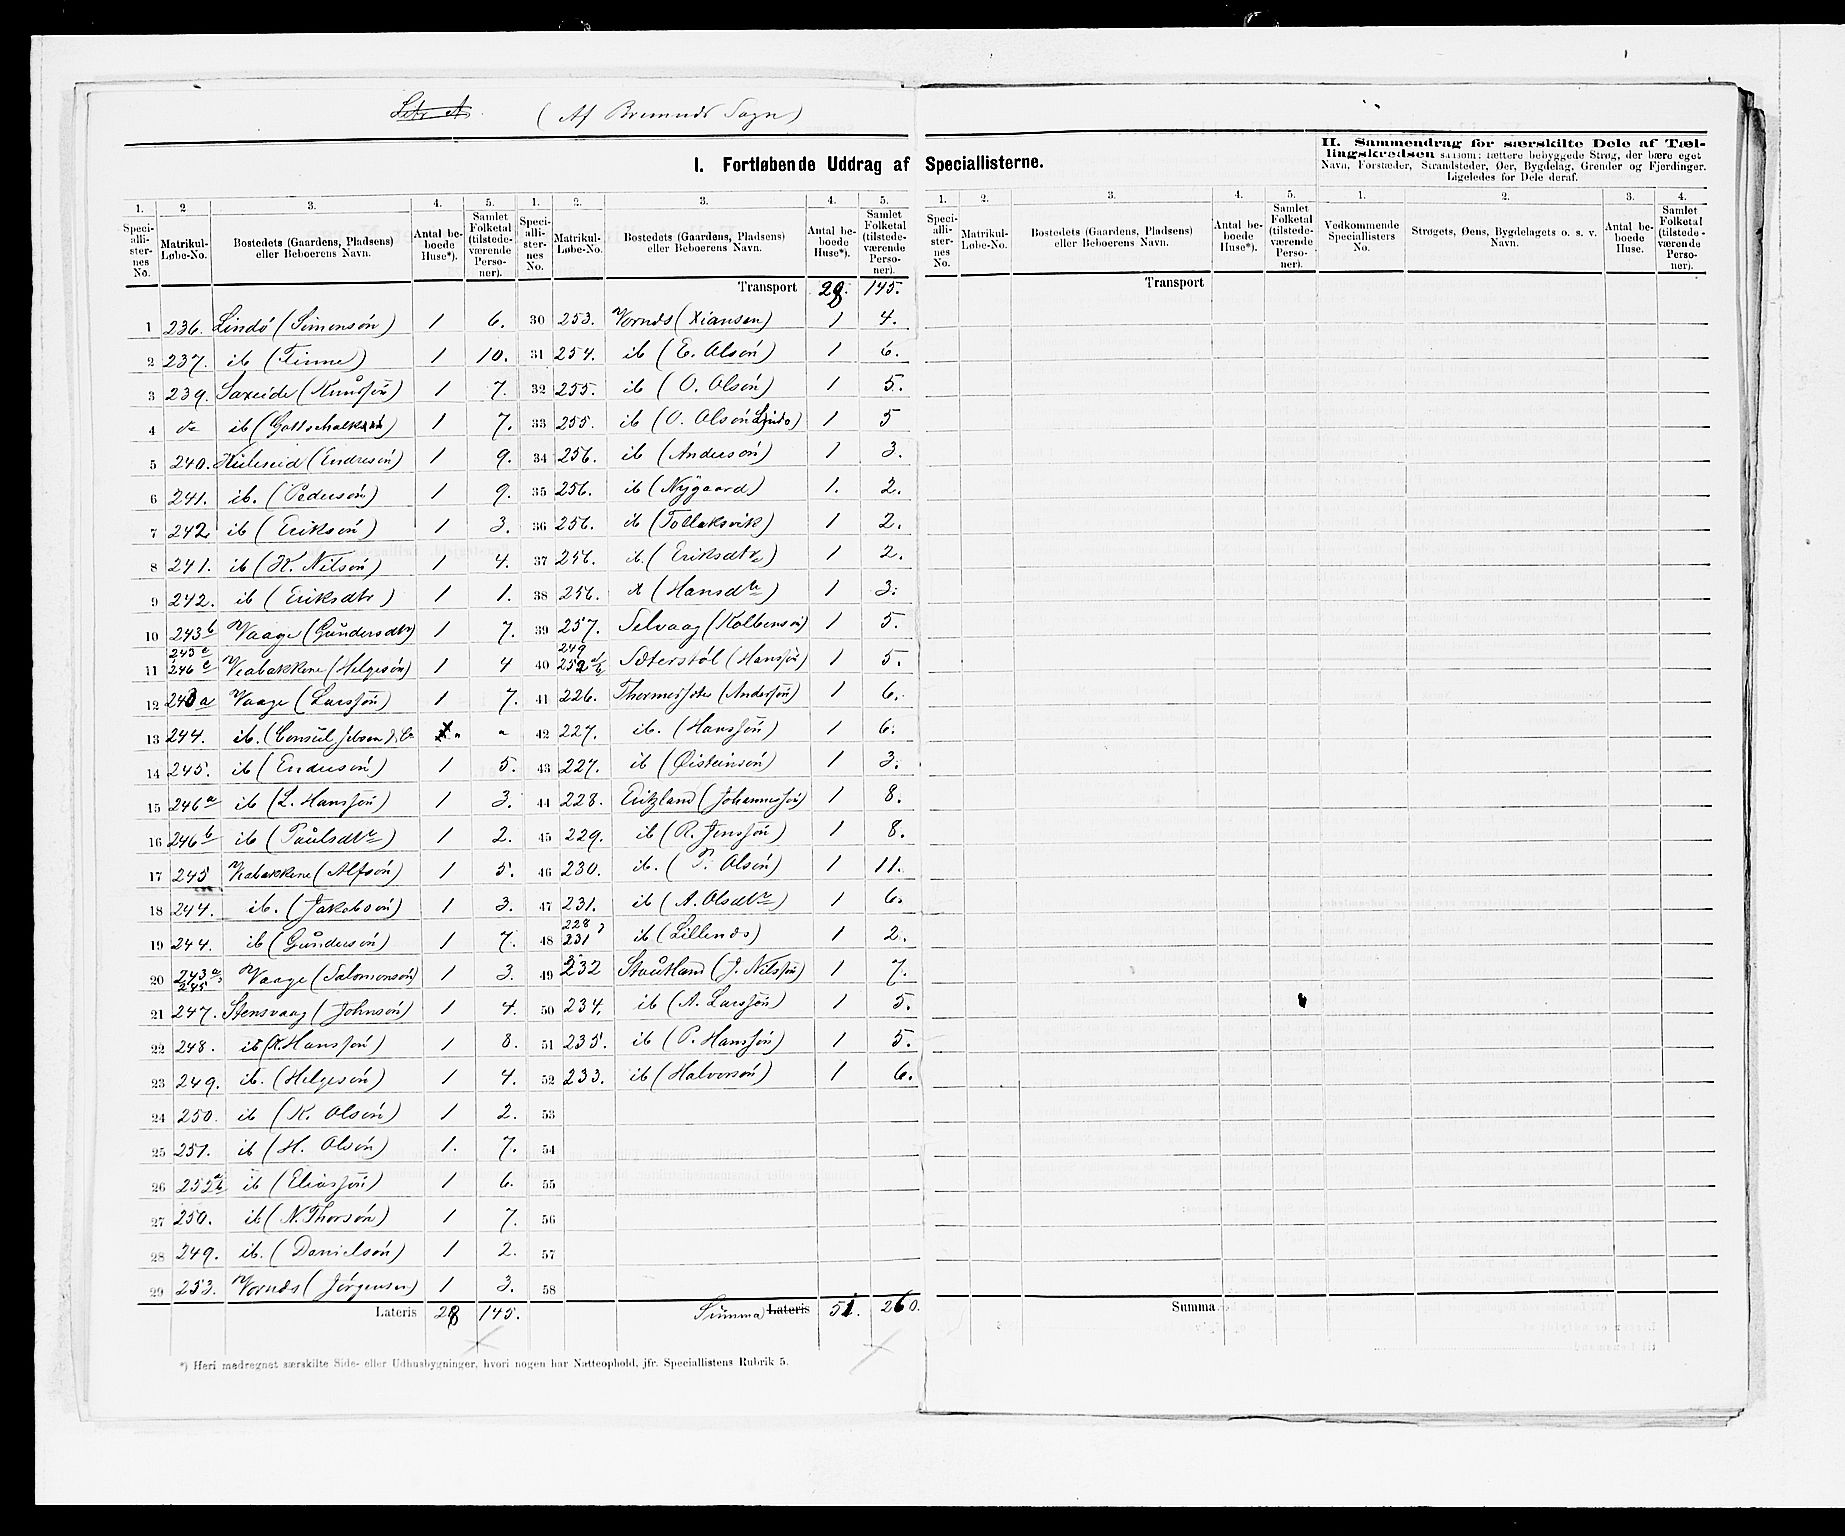 Litr A. (Af Bremnds Sogn)
I. Fortløbende Uddrag af Speciallisterne.
II. Sammendrag for særskilte Dele af Tællingskredsen saasom: tættere bebyggede Strøg, der bære eget Navn, Forstæder, Strandsteder, Øer, Bygdelag, Grender og Fjerdinger. Ligeledes for Dele deraf.
1. 2 3. 4. 5. 1. 2. 3. 4. 5.
Speciallisternes No. Matrikul-Løbe-No. Bostedets (Gaardens, Pladsens) eller Beboerens Navn. Antal beboede Huse*). Samlet Folketal (tilstedeværende Personer).
Speciallisternes No. Matrikul-Løbe-No. Bostedets (Gaardens, Pladsens) eller Beboerens Navn. Antal beboede Huse*). Samlet Folketal (tilstedeværende Personer).
Transport 28. 145.
1 236. Lindö (Simonsön) 1 6.
2 237. ib (Finne) 1 10.
3 239. Saxeide (Knudsön) 1 7.
4 do ib (Gottschalksön) 1 7.
5 240. Kuleseid (Endresön) 1 9.
6 241. ib. (Pedersön) 1 9.
7 242 ib (Eriksön) 1 3.
8 241. ib (K. Nilsön) 1 4.
9 242. ib (Eriksdtr) 1 1.
10 243b Vaage (Gundersdtr) 1 7.
11 243c 246c Veabakkene (Helgesön) 1 4
12 243a Vaage (Larssön) 1 7.
13 244. ib. (Consul Jebsen & Co " "
14 245. ib (Endresön) 1 5.
15 246a ib (L. Hanssön) 1 3.
16 246b ib (Paulsdtr) 1 2.
17 245 Veabakkene (Alfsön) 1 5.
18 244. ib. (Jakobsön) 1 3.
19 244. ib (Gundersön) 1 7.
20 243a 245 Vaage (Salomonsön) 1 3.
21 247. Stensvaag (Johnsön) 1 4.
22 248. ib (K. Hanssön) 1 8.
23 249. ib. (Helgesön) 1 4.
24 250. ib (K. Olsön) 1 2.
25 251. ib (H. Olsön) 1. 7.
26 252ab ib (Eliassön) 1 6.
27 250. ib (N. Thorsön) 1 7.
28 249. ib. (Danielsön) 1 2.
29 253. Vornds (Jörgensen) 1 3.
Lateris 28 145.
30 253. Vornds (Xiansen) 1 4.
31 254. ib (E. Olsön) 1 6.
32 255. ib (O. Olsön) 1 5.
33 255. ib (O. Olsön Lindo) 1 5
34 256. ib (Andersön) 1 3.
35 256. ib (Nygaard) 1. 2.
36 256. ib (Tollaksvik) 1 2.
37 256. ib. (Eriksdtr) 1 2.
38 256. ib (Hansdtr) 1 3.
39 257. Selvaag (Kolbensön) 1 5.
40 249 252ab Sæterstöl (Hanssön) 1 5.
41 226. (Anderssön) 1 6.
42 227. ib. (Hanssön) 1 6.
43 227. ib (Øisteinsön) 1 3.
44 228. Eritzland (Johannessön) 1 8.
45 229. ib (R. Jenssön) 1 8.
46 230. ib. (P. Olsön) 1 11.
47 231. ib (A. Olsdtr) 1 6.
48 228 231 ib (Lillends) 1 2.
49 232 Stautland (J. Nilssön) 1 7.
50 234. ib (A. Larssön) 1 5.
51 235. ib (P. Hanssön) 1 5.
52 233. ib (Halvorsön) 1 6.
53
54
55
56
57
58
Summa Lateris 51. 260.
*) Heri medregnet særskilte Side- eller Udhusbygninger, hvori nogen har Natteophold, jfr. Speciallistens Rubrik 5.
1. 2. 3. 4. 5. 1. 2. 3. 4.
Speciallisternes No. Matrikul-Løbe-No. Bostedets (Gaardens, Pladsens) eller Beboerens Navn. Antal beboede Huse*). Samlet Folketal (tilstedeværende Personer).
Vedkommende Speciallisters No. Strøgets, Øens, Bygdelagets o. s. v. Navn. Antal beboede Huse. Samlet Folketal (tilstedeværende Personer).
Transport
Summa